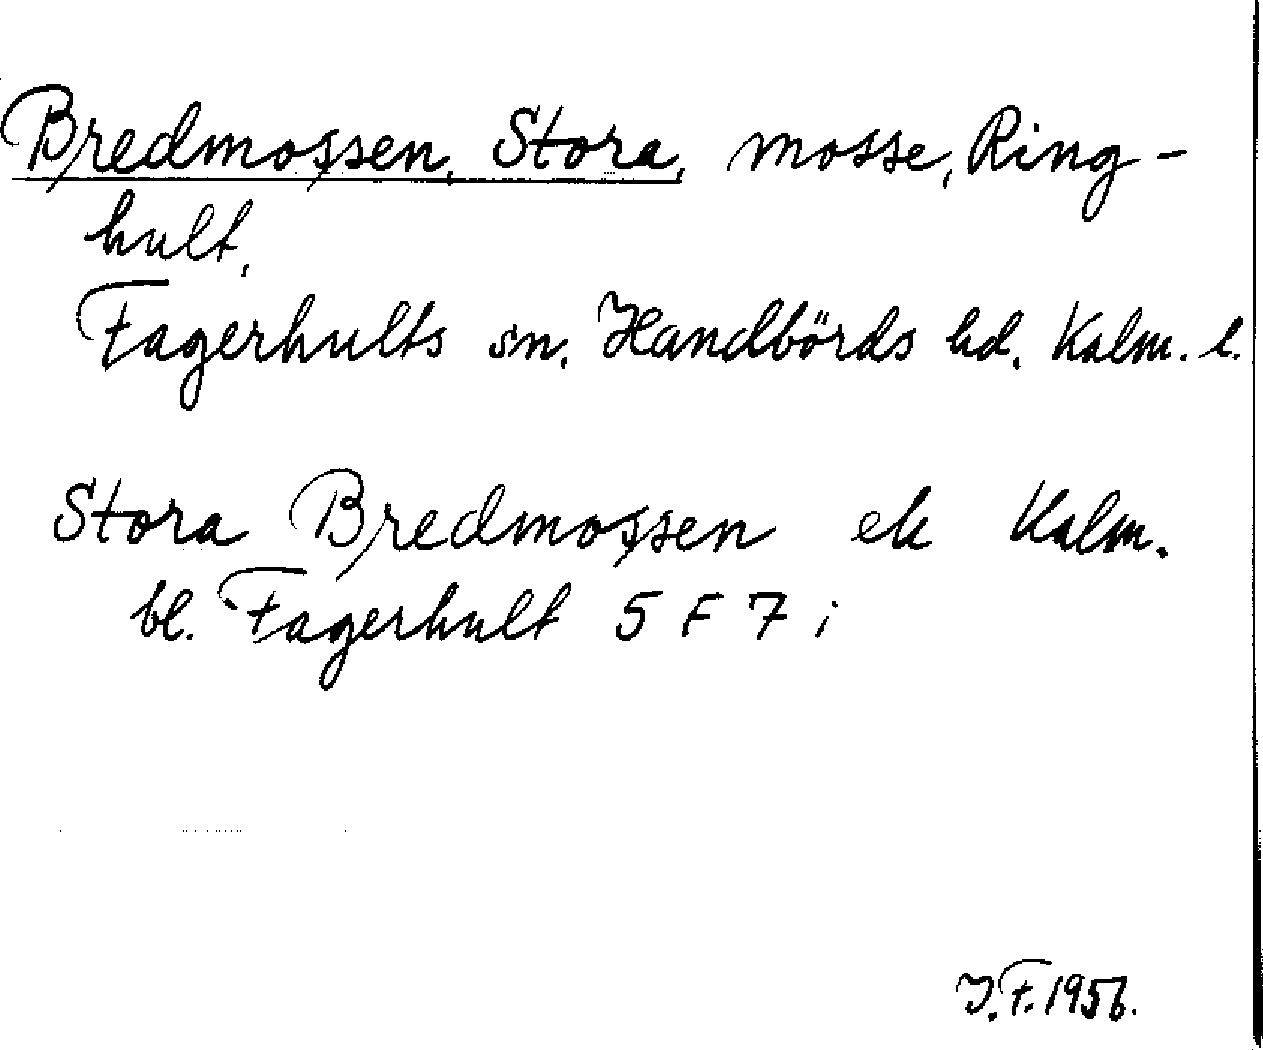 Bredmossen, Stora, mosse, Ring-
hult,
Fagerhults sn. Handbörds hd. Kalm. l.
Stora Bredmossen ek Kalm.
bl. Fagerhult 5 F 7 i
J.F. 1956.